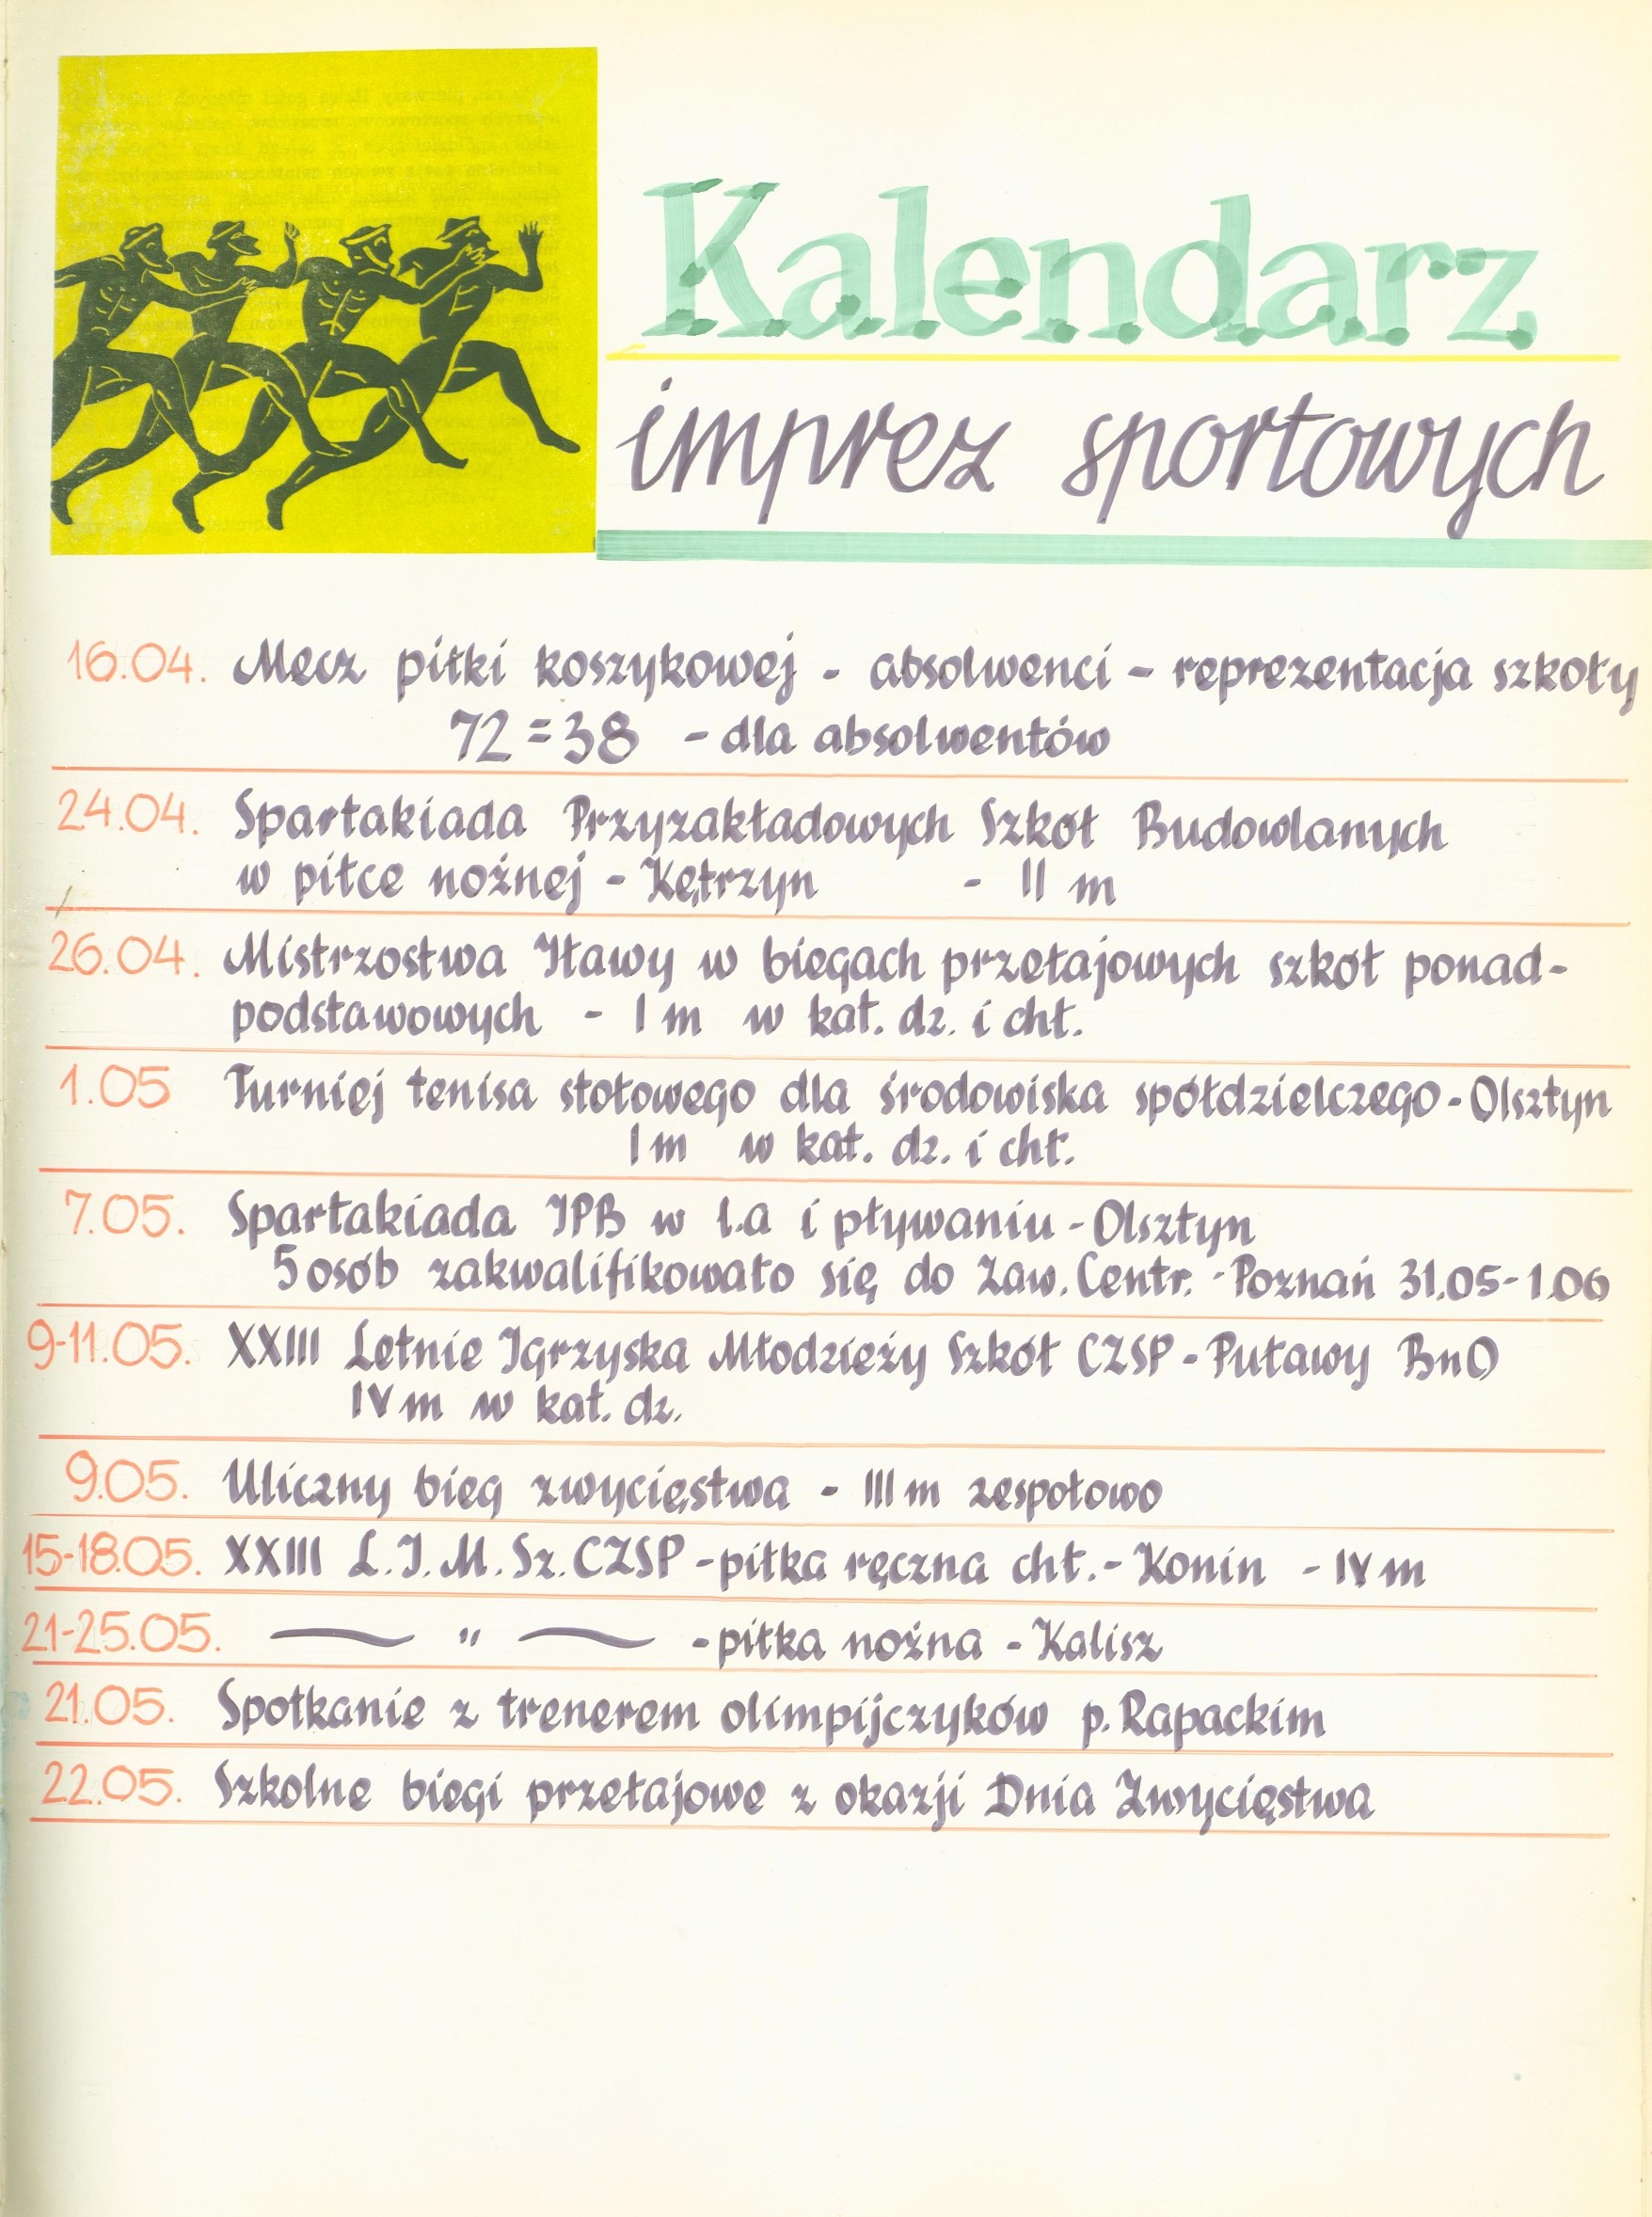 Kalendarz
imprez sportowych
16.04. Mecz piłki koszykowej - absolwenci - reprezentacja szkoły
72=38 - dla absolwentów
24.04. Spartakiada Przyzakładowych Szkół Budowlanych
w piłce nożnej - Kętrzyn - II m
26.04. Mistrzostwa Iławy w biegach przełajowych szkół ponad-
podstawowych - I m w kat. dz. i chł.
1.05 Turniej tenisa stołowego dla środowiska spółdzielczego - Olsztyn
I m w kat. dz. i chł.
7.05. Spartakiada IPB w l.a i pływaniu - Olsztyn
5 osób zakwalifikowało się do Zaw. Centr. - Poznań 31.05-1.06
9-11.05. XXIII Letnie Igrzyska Młodzieży Szkół CZSP - Puławy BnO
IV m w kat. dz.
9.05. Uliczny bieg zwycięstwa - III m zespołowo
15-18.05. XXIII L.I.M.Sz. CZSP - piłka ręczna chł. - Konin - IV m
21-25.05. — " — - piłka nożna - Kalisz
21.05. Spotkanie z trenerem olimpijczyków p. Rapackim
22.05. Szkolne biegi przełajowe z okazji Dnia Zwycięstwa